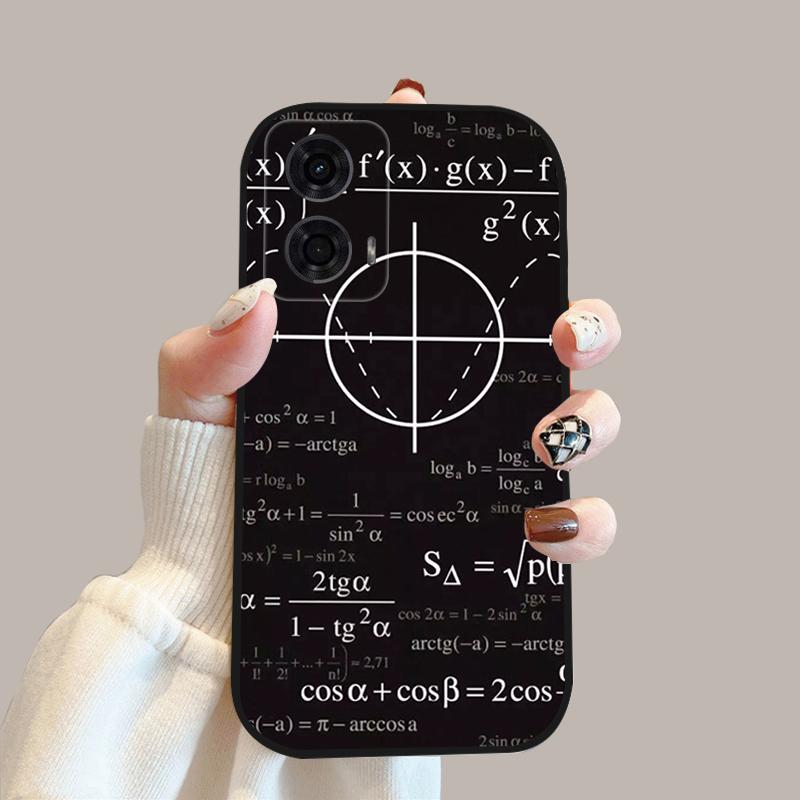 sin α cos α
logₐ b/c = logₐ b – lo
(x) ′ f′(x)·g(x) – f
(x) g²(x)
cos 2α = c
+ cos² α = 1
–a) = –arctga
logₐ b = log_c b / log_c a
= r logₐ b
tg²α+1 = 1/sin² α = cosec²α sin α
os x)² = 1 – sin 2x
S_Δ = √p(p
α = 2tgα / 1 – tg²α
tgx =
cos 2α = 1 – 2 sin² α
arctg(–a) = –arctg
+ 1/1! + 1/2! + ... + 1/n!) ≈ 2,71
cos α + cos β = 2cos
s(–a) = π – arccos a
2 sin α